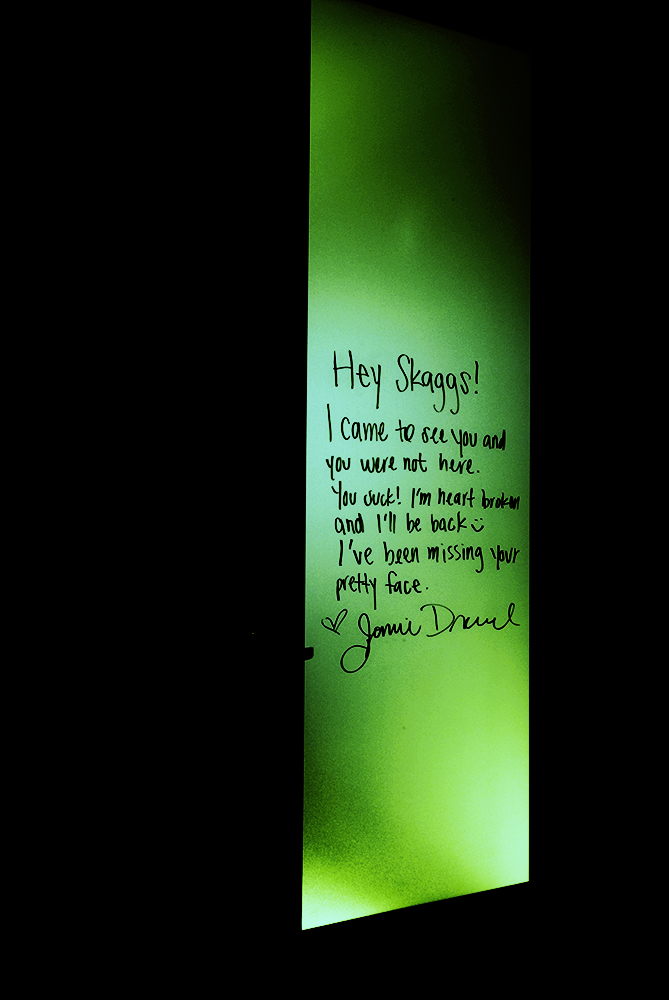 Hey Skaggs!
I came to see you and
you were not here.
You suck! I'm heart broken
and I'll be back
I've been missing your
pretty face.
Jamie